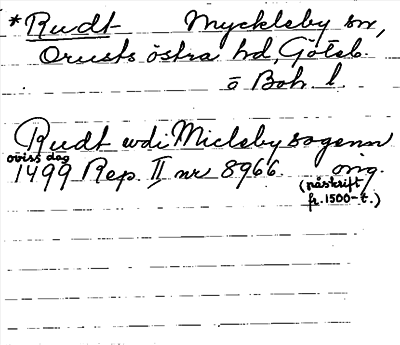 *Rudt Myckleby sn,
Orusts östra hd, Göteb.
o Boh. l.
Rudt wdi Micleby sogenn
oviss dag
1499 Rep. II nr 8966. orig.
(påskrift
fr. 1500-t.)